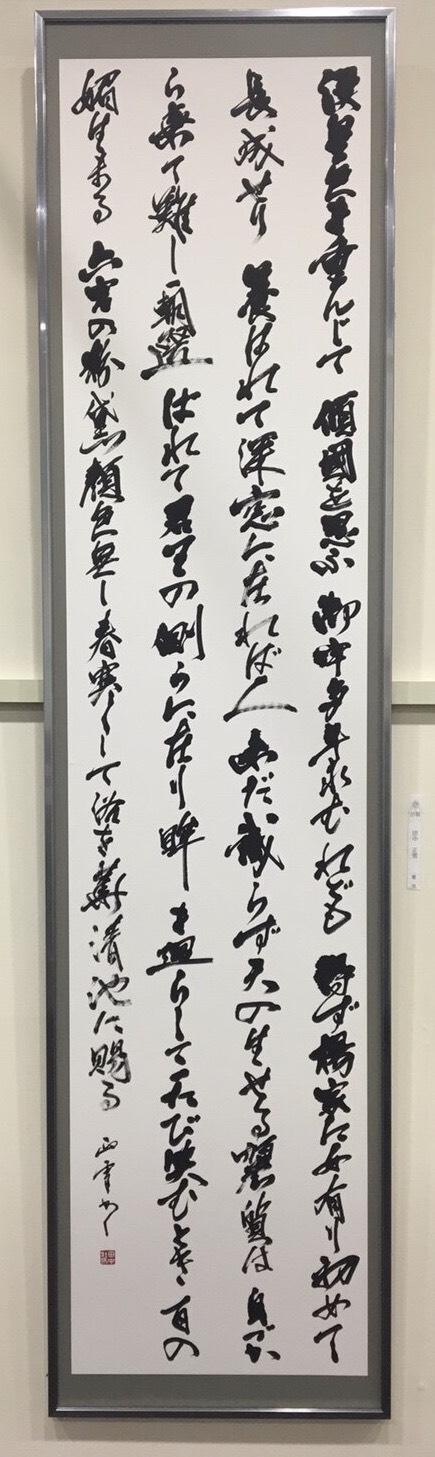 漢皇色を重んじて 傾國を思ふ 御宇多年求むれども 得ず楊家に女有り初めて
長成せり 養はれて深窓に在れば人未だ識らず天の生せる麗質は自づか
ら棄て難し一朝選ばれて君王の側らに在り眸を廻らして一たび笑むとき百の
媚生まる 六宮の粉黛顔色無し春寒くして浴を華清池に賜る